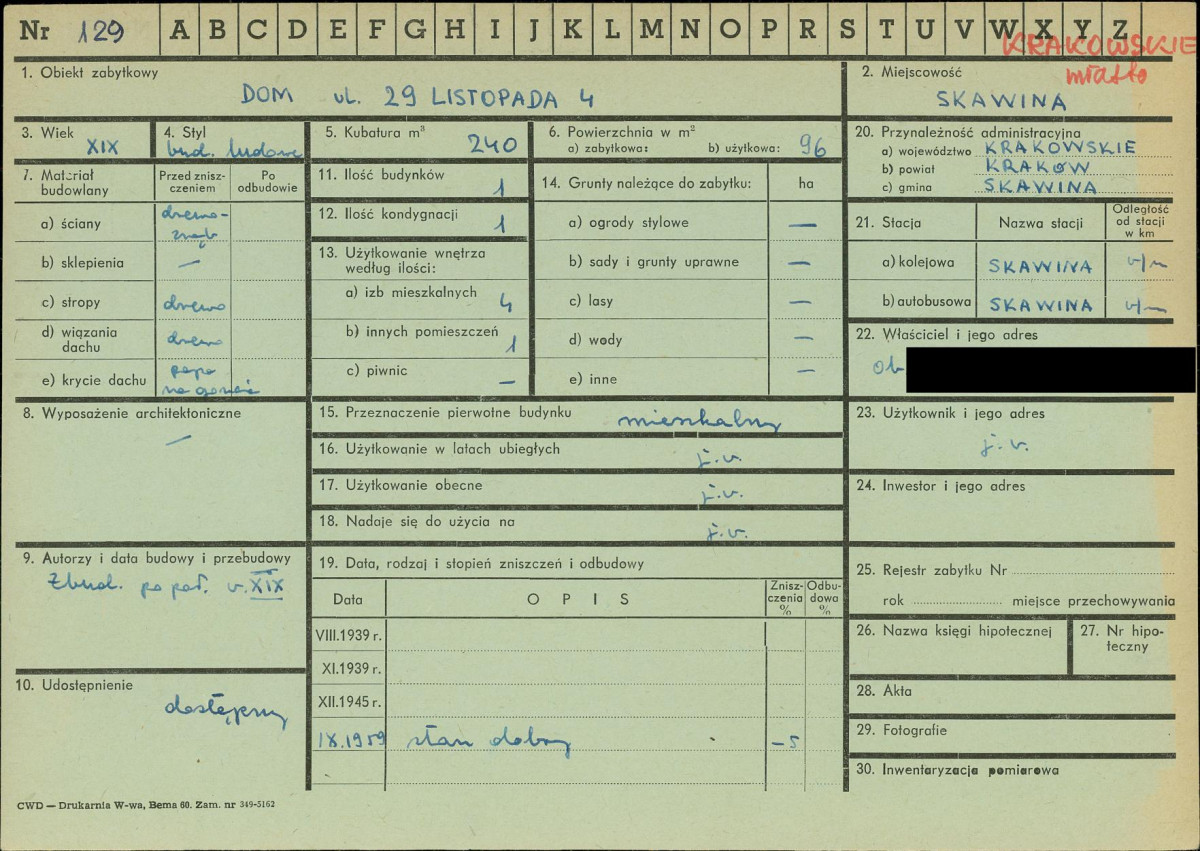 Nr 129 A B C D E F G H I J K L M N O P R S T U V W X Y Z
KRAKOWSKIE
miasto
1. Obiekt zabytkowy
DOM ul. 29 LISTOPADA 4
2. Miejscowość
SKAWINA
3. Wiek
XIX
4. Styl
bud. ludowe
5. Kubatura m³
240
6. Powierzchnia w m²
a) zabytkowa: b) użytkowa: 96
7. Materiał budowlany
Przed zniszczeniem
Po odbudowie
a) ściany drewno-
zrąb
b) sklepienia —
c) stropy drewno
d) wiązania dachu drewno
e) krycie dachu papa
na goncie
8. Wyposażenie architektoniczne
—
9. Autorzy i data budowy i przebudowy
Zbud. po poł. w. XIX
10. Udostępnienie
dostępny
11. Ilość budynków 1
12. Ilość kondygnacji 1
13. Użytkowanie wnętrza
według ilości:
a) izb mieszkalnych 4
b) innych pomieszczeń 1
c) piwnic —
14. Grunty należące do zabytku: ha
a) ogrody stylowe —
b) sady i grunty uprawne —
c) lasy —
d) wody —
e) inne —
15. Przeznaczenie pierwotne budynku mieszkalny
16. Użytkowanie w latach ubiegłych j.w.
17. Użytkowanie obecne j.w.
18. Nadaje się do użycia na j.w.
19. Data, rodzaj i stopień zniszczeń i odbudowy
Data OPIS Zniszczenia % Odbudowa %
VIII.1939 r.
XI.1939 r.
XII.1945 r.
IX.1959 stan dobry —5
20. Przynależność administracyjna
a) województwo KRAKOWSKIE
b) powiat KRAKÓW
c) gmina SKAWINA
21. Stacja Nazwa stacji Odległość od stacji w km
a) kolejowa SKAWINA w/m
b) autobusowa SKAWINA w/m
22. Właściciel i jego adres
ob
23. Użytkownik i jego adres
j.w.
24. Inwestor i jego adres
25. Rejestr zabytku Nr
rok miejsce przechowywania
26. Nazwa księgi hipotecznej
27. Nr hipoteczny
28. Akta
29. Fotografie
30. Inwentaryzacja pomiarowa
CWD — Drukarnia W-wa, Bema 60. Zam. nr 349-5162